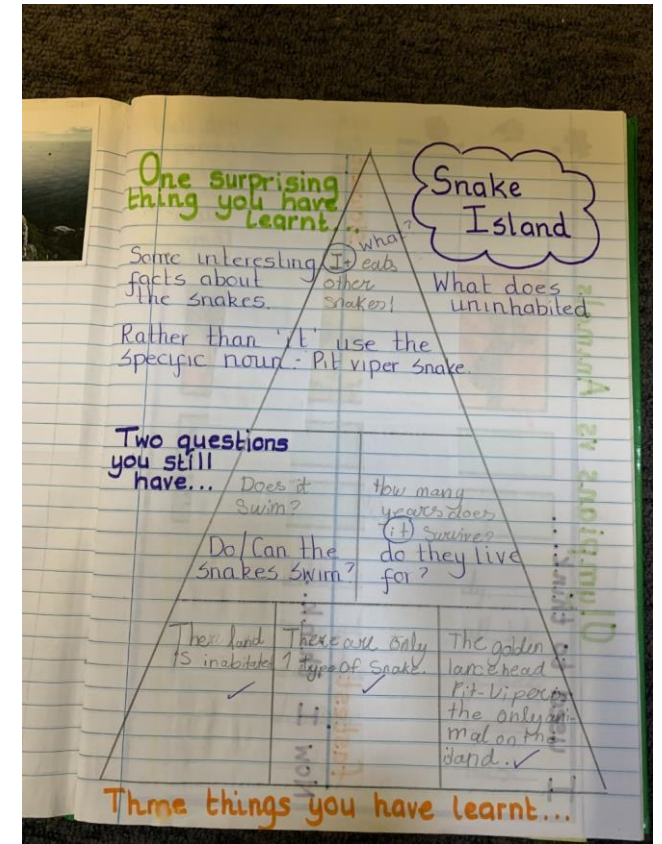 One surprising
thing you have
learnt...
Snake
Island
what?
Some interesting
facts about
the snakes.
It eats
other
snakes!
What does
uninhabited
Rather than 'it' use the
specific noun - Pit viper snake.
Two questions
you still
have...
Does it
swim?
How many
years does
it survive?
Do/Can the
snakes swim?
do they live
for?
land
is inabitated
There are only
1 type of snake.
The golden
lancehead
Pit-Viper is
the only ani-
mal on the
island.
Three things you have learnt...